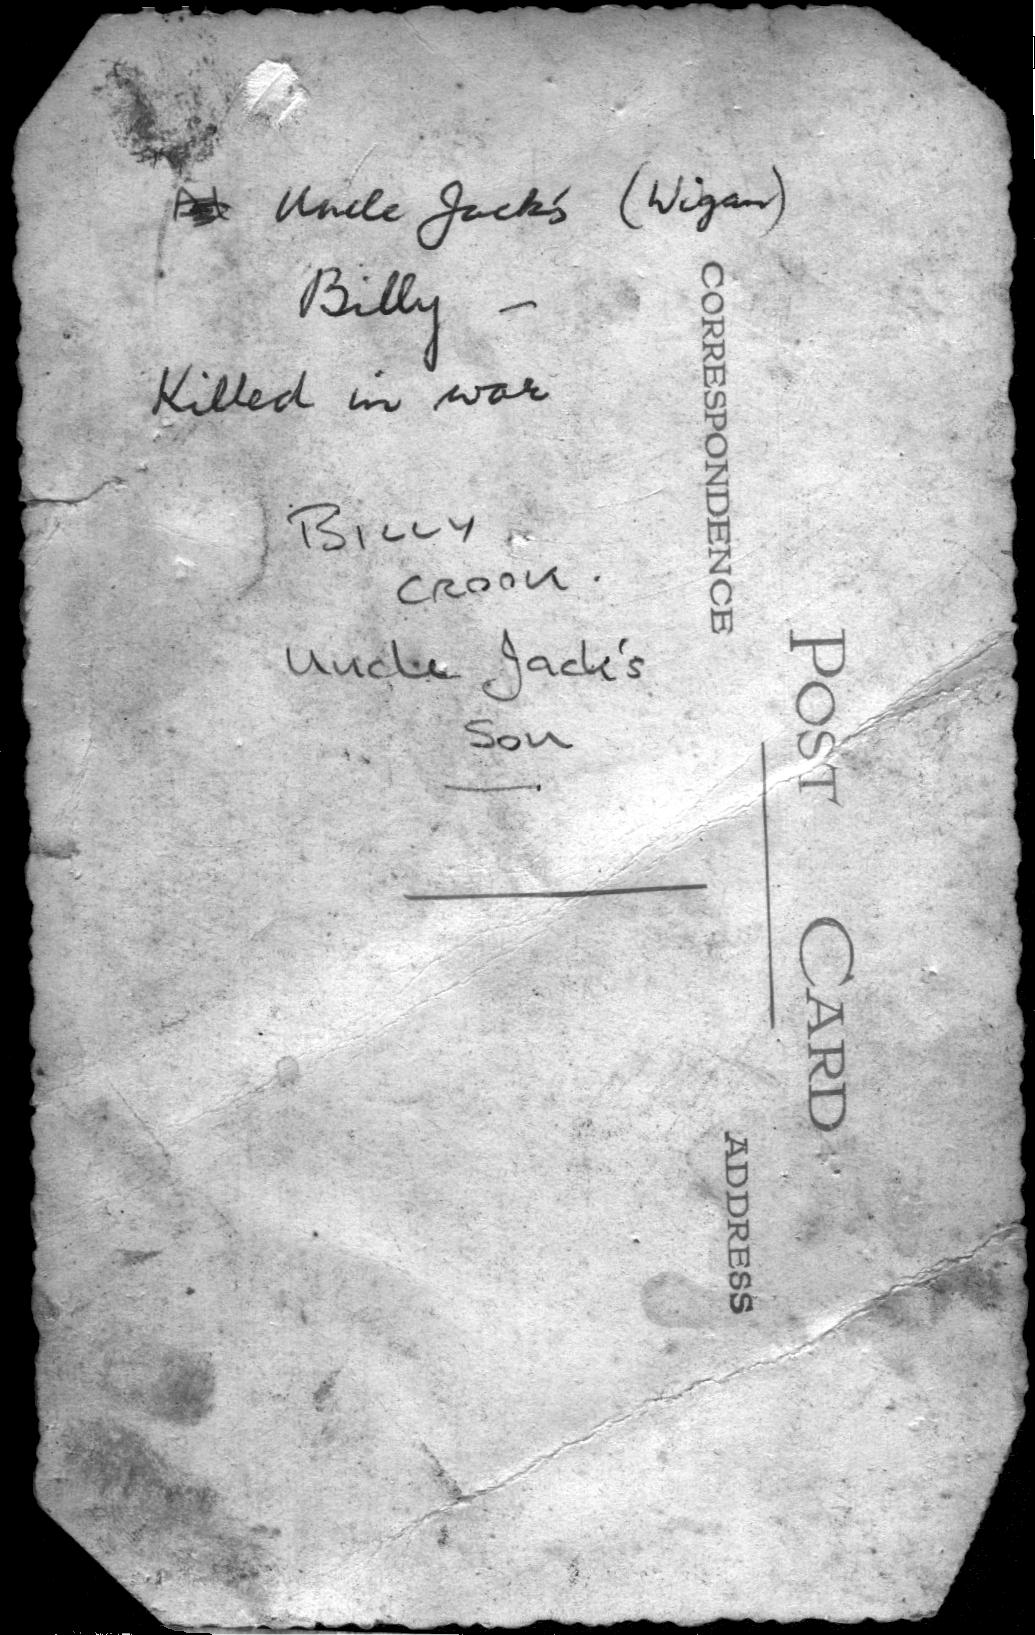 Uncle Jack's (Wigan)
Billy –
Killed in war
BILLY
CROOK.
Uncle Jack's
Son
CORRESPONDENCE
POST CARD
ADDRESS